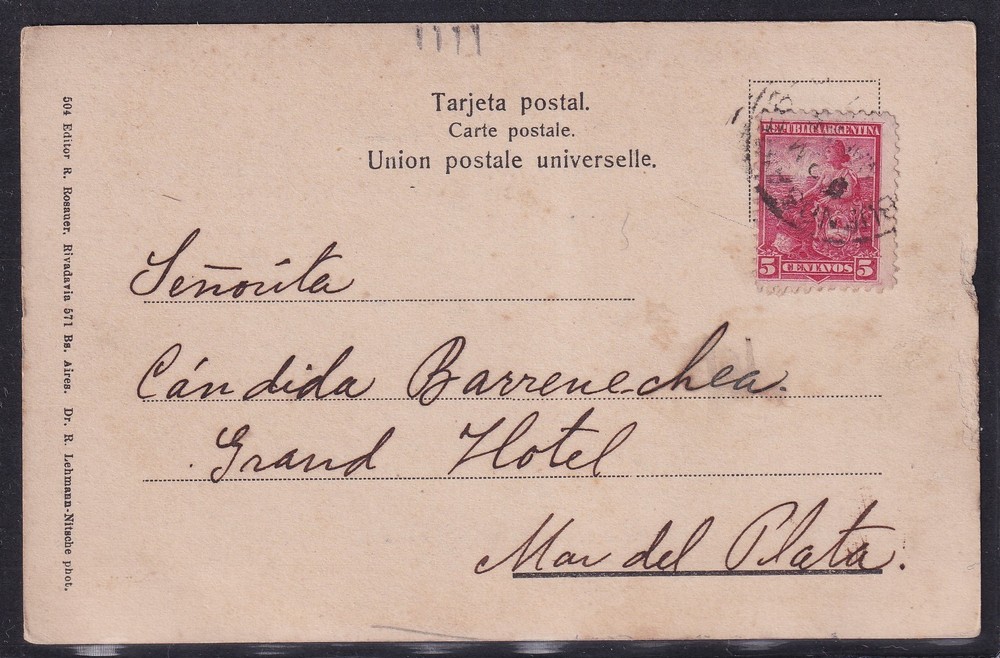 Tarjeta postal.
Carte postale.
Union postale universelle.
REPUBLICA ARGENTINA
5 CENTAVOS 5
Señorita
Cándida Barrenechea.
Grand Hotel
Mar del Plata.
504 Editor R. Rosauer, Rivadavia 571 Bs. Aires. Dr. R. Lehmann-Nitsche phot.